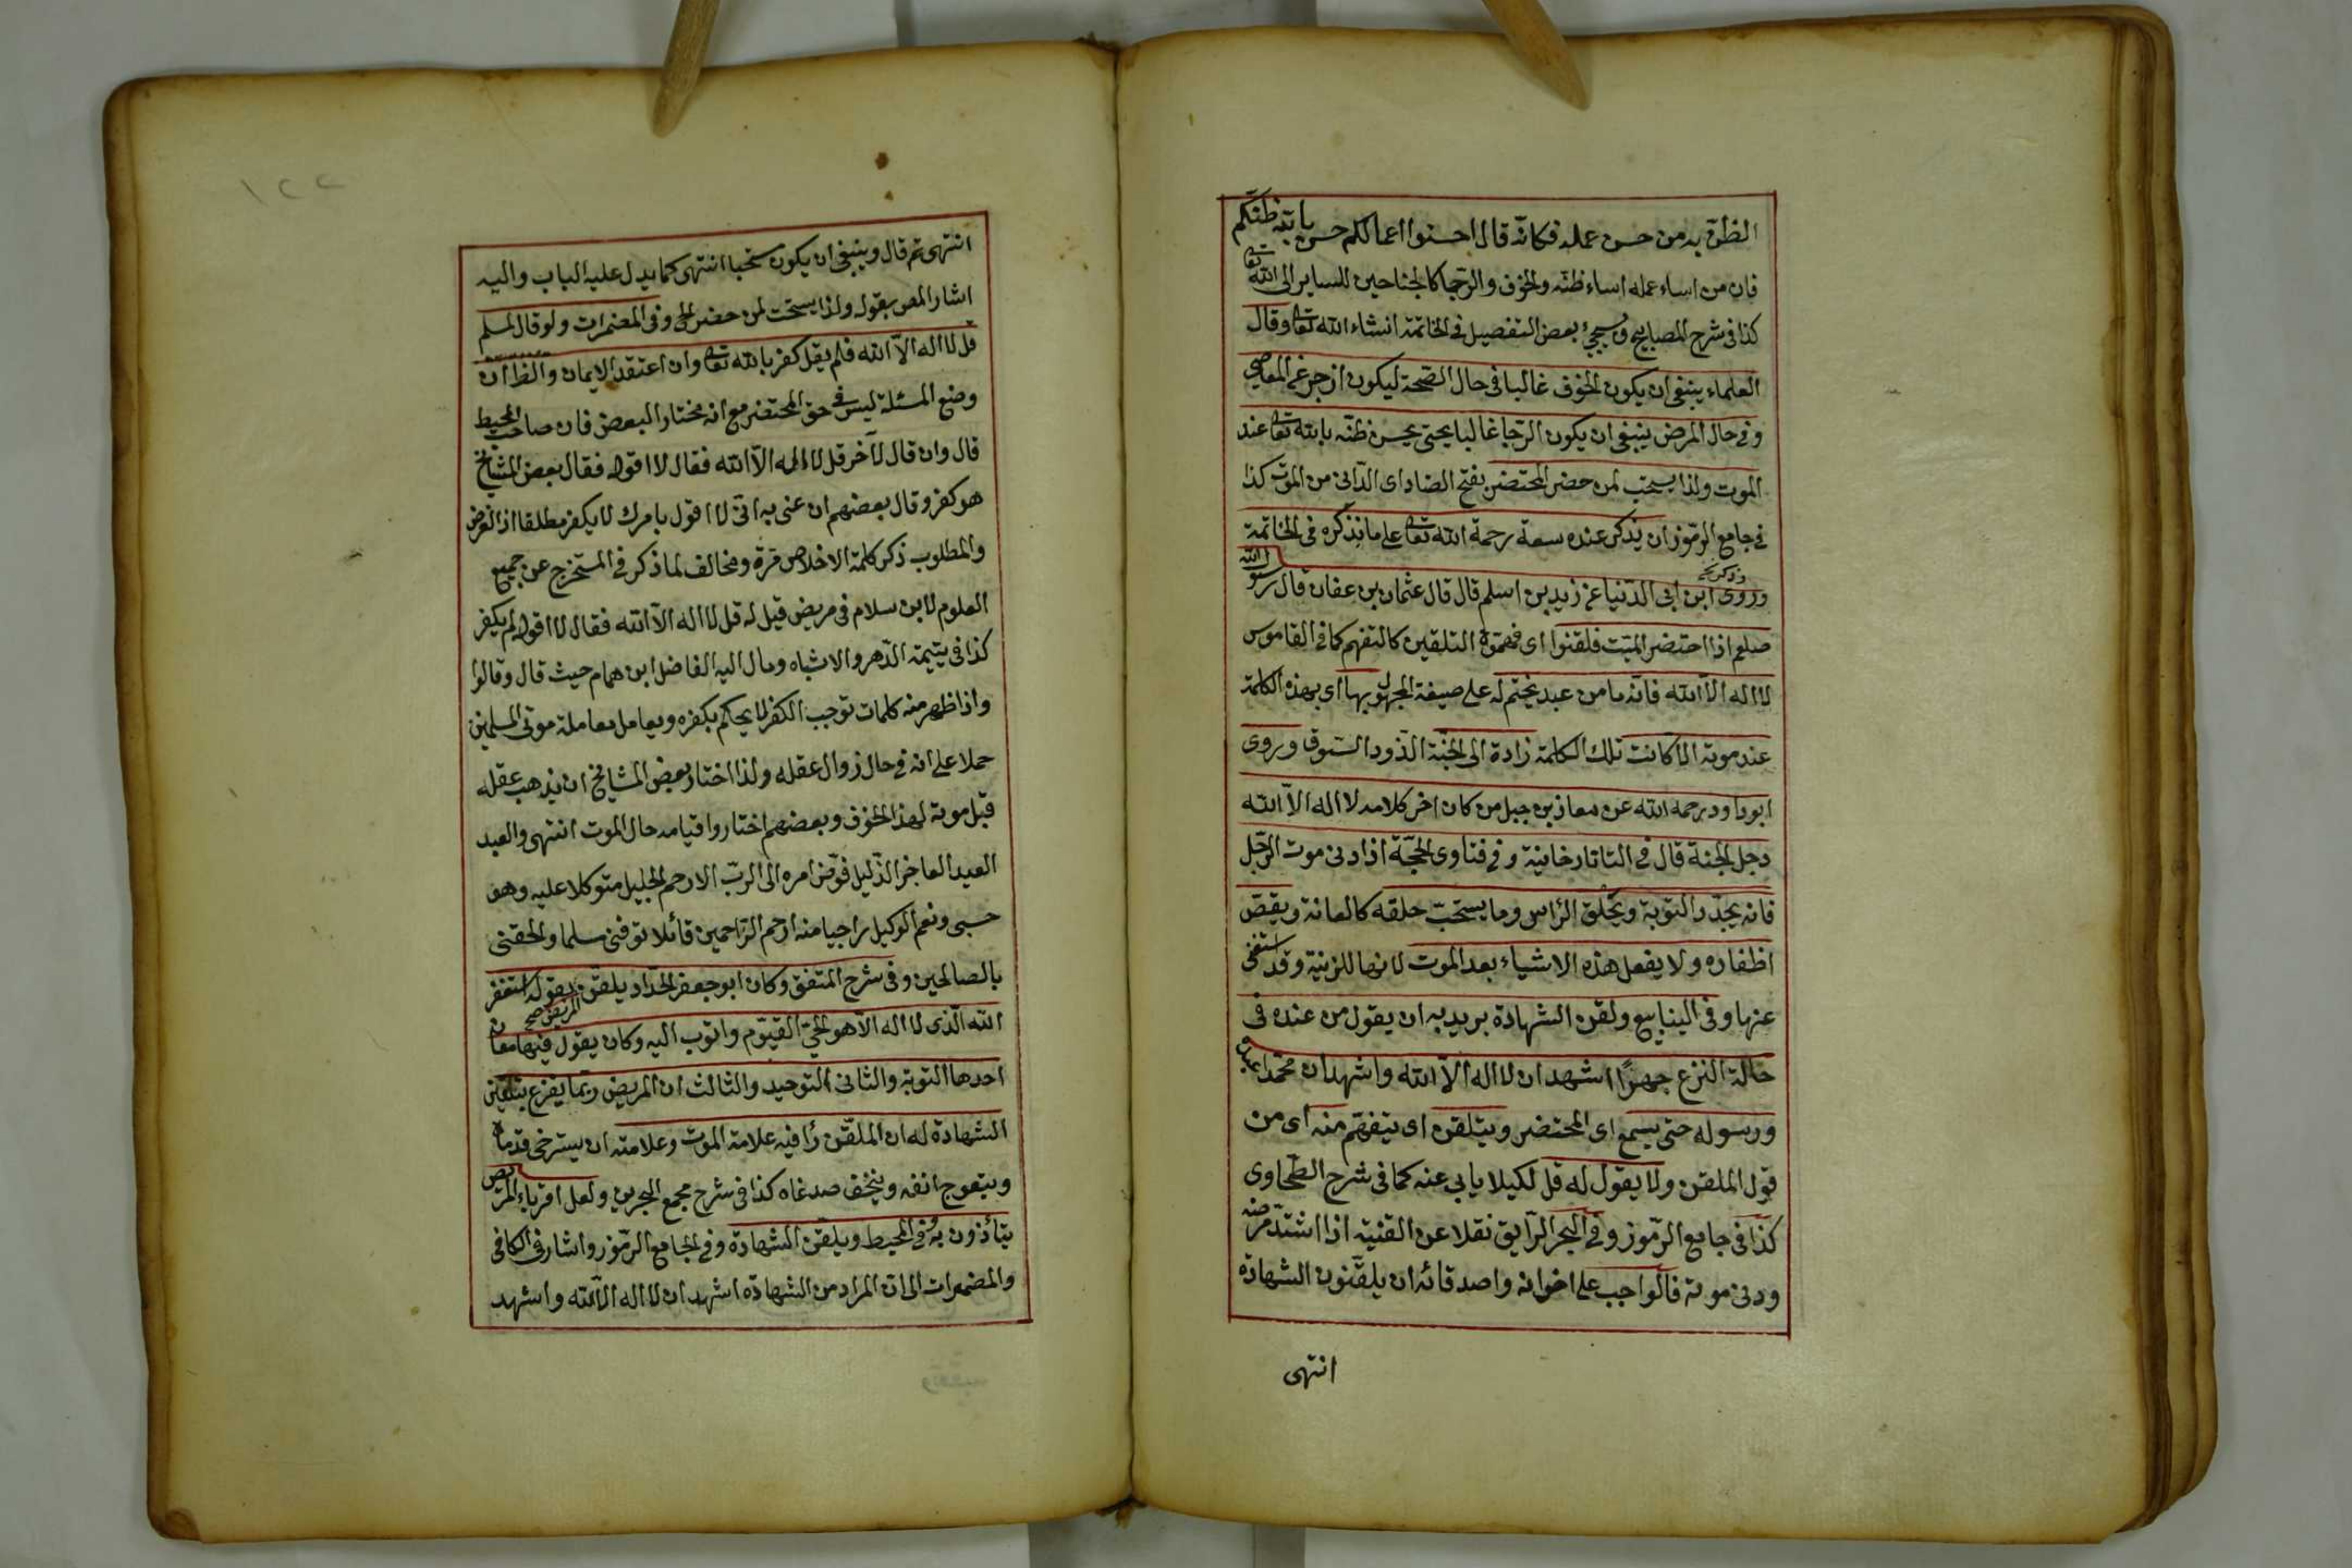 الظن به من حسن عمله فكانه قال احسنوا اعمالكم حسن بالله ظنكم
فان من اساء عمله اساء ظنه والخوف والرجا كالجناحين للساير الى الله تعا
كذا فى شرح المصابيح وسيجئ بعض التفصيل فى الخاتمة انشاء الله تعا وقال
العلماء ينبغى ان يكون الخوف غالبا فى حال الصحة ليكون ازجر عن المعاصى
وفى حال المرض ينبغى ان يكون الرجا غالبا يحتى يحسن ظنه بالله تعا عند
الموت ولذا يستحب لمن حضر المحتضر بفتح الضاد اى الدانى من الموت كذا
فى جامع الرموز ان يذكر عنده سعة رحمة الله تعا على ما نذكره فى الخاتمة
وروى ابن ابى الدنيا عن زيد بن اسلم قال قال عثمان بن عفان قال رسول الله
صلعم اذا احتضر الميت فلقنوا اى فهموه التلقين كالتفهم كما فى القاموس
لا اله الا الله فانه ما من عبد يختم له على صيغة المجهول بها اى بهذه الكلمة
عند موته الا كانت تلك الكلمة زادة الى الجنة الذود السوق وروى
ابو داود رحمه الله عن معاذ بن جبل من كان اخر كلامه لا اله الا الله
دجل الجنة قال فى التاتارخانية وفى فتاوى الحجة اذا دنى موت الرجل
فانه يجدد التوبة ويحلق الراس وما يستحب حلقه كالعانة ويقص
اظفاره ولا يفعل هذه الاشياء بعد الموت لانها للزينة وقد استغنى
عنها وفى الينابيع ولقن الشهادة يريد به ان يقول من عنده فى
حالة النزع جهرا اشهد ان لا اله الا الله واشهد ان محمدا عبده
ورسوله حتى يسمع اى المحتضر ويتلقن اى يتفهم منه اى من
قول الملقن ولا يقول له قل لكيلا يابى عنه كما فى شرح الطحاوى
كذا فى جامع الرموز وفى البحر الرايق نقلا عن القنية اذا اشتد مرضه
ودنى موته فالواجب على اخوانه واصدقائه ان يلقنون الشهادة
انتهى
١٢٢
انتهى ثم قال وينبغى ان يكون مستحبا انتهى كما يدل عليه الباب واليه
اشار المص بقوله ولذا يستحب لمن حضر الخ وفى المضمرات ولو قال لمسلم
قل لا اله الا الله فلم يقل كفر بالله تعا وان اعتقد الايمان والظ ان
وضع المسئلة ليس فى حق المحتضر مع انه مختار البعض فان صاحب المحيط
قال وان قال لآخر قل لا اله الا الله فقال لا اقول فقال بعض المشايخ
هو كفر وقال بعضهم ان عنى به انى لا اقول بامرك لا يكفر مطلقا اذ الغرض
والمطلوب ذكر كلمة الاخلاص مرة ومخالف لما ذكر فى المستخرج عن جميع
العلوم لابن سلام فى مريض قيل له قل لا اله الا الله فقال لا اقول لم يكفر
كذا فى يتيمة الدهر والاشباه ومال اليه الفاضل ابن همام حيث قال وقالوا
واذا ظهر منه كلمات توجب الكفر لا يحكم بكفره ويعامل معاملة موتى المسلمين
حملا على انه فى حال زوال عقله ولذا اختار بعض المشايخ ان يذهب عقله
قبل موته لهذا الخوف وبعضهم اختاروا قيامه حال الموت انتهى والعبد
العبد العاجز الذليل فوض امره الى الرب الارحم الجليل متوكلا عليه وهو
حسبى ونعم الوكيل راجيا منه ارحم الراحمين قائلا توفنى مسلما والحقنى
بالصالحين وفى شرح المتفق وكان ابو جعفر الحداد يلقن المريض صح بقوله استغفر
الله الذى لا اله الا هو الحى القيوم واتوب اليه وكان يقول فيها معان
احدها التوبة والثانى التوحيد والثالث ان المريض ربما يفزع بتلقين
الشهادة له ان الملقن رأ فيه علامة الموت وعلامته ان يسترخى قدماه
ويتعوج انفه وينخسف صدغاه كذا فى شرح مجمع البحرين ولعل اقرباء المريض
يتأذون به وفى المحيط ويلقن الشهادة وفى الجامع الرموز واشار فى الكافى
والمضمرات الى ان المراد من الشهادة اشهد ان لا اله الا الله واشهد